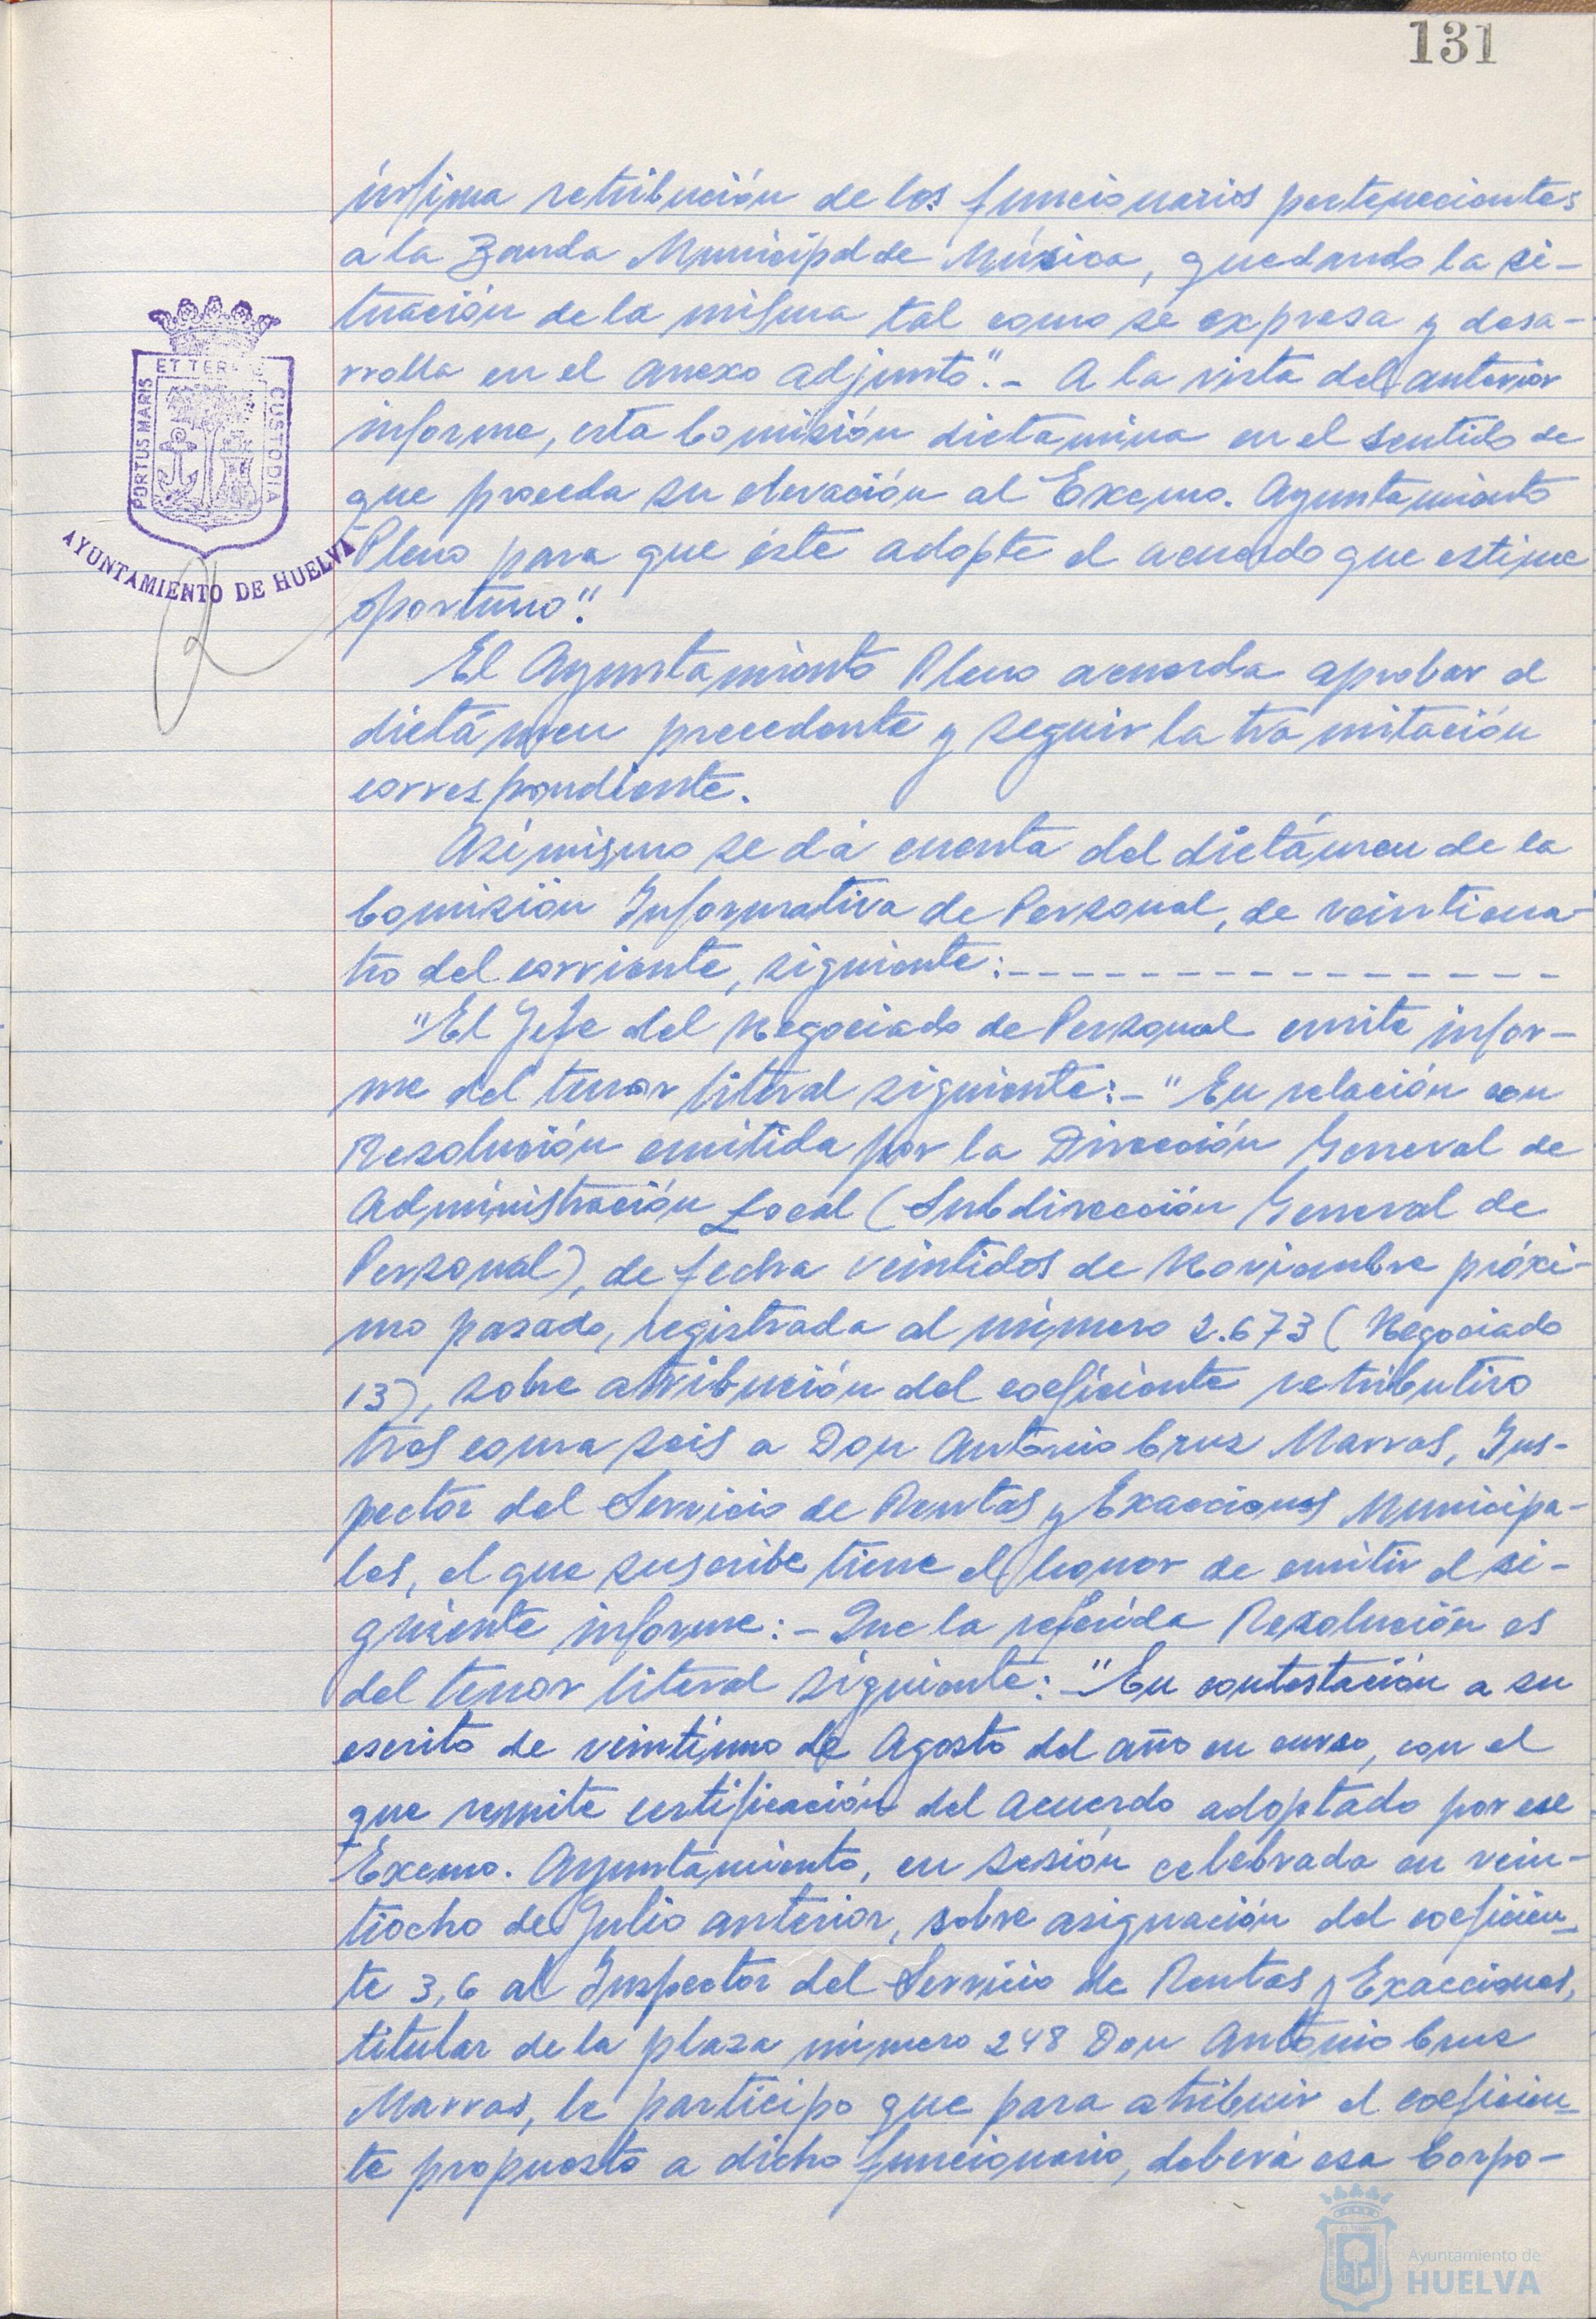 131
ínfima retribución de los funcionarios pertenecientes
a la Banda Municipal de Música, quedando la si-
tuación de la misma tal como se expresa y desa-
rrolla en el anexo adjunto".- A la vista del anterior
informe, esta Comisión dictamina en el sentido de
que proceda su elevación al Excmo. Ayuntamiento
Pleno para que éste adopte el acuerdo que estime
oportuno".
El Ayuntamiento Pleno acuerda aprobar el
dictámen precedente y seguir la tramitación
correspondiente.
Asímismo se dá cuenta del dictámen de la
Comisión Informativa de Personal, de veinticua-
tro del corriente, siguiente:- - - - - - - - - - - - - - -
"El Jefe del Negociado de Personal emite infor-
me del tenor literal siguiente:- "En relación con
Resolución emitida por la Dirección General de
Administración Local (Subdirección General de
Personal), de fecha veintidos de Noviembre próxi-
mo pasado, registrada al número 2.673 (Negociado
13), sobre atribución del coeficiente retributivo
tres coma seis a Don Antonio Cruz Marras, Ins-
pector del Servicio de Rentas y Exacciones Municipa-
les, el que suscribe tiene el honor de emitir el si-
guiente informe:- Que la referida Resolución es
del tenor literal siguiente:- "En contestación a su
escrito de veintiuno de Agosto del año en curso, con el
que remite certificación del acuerdo adoptado por ese
Excmo. Ayuntamiento, en sesión celebrada en vein-
tiocho de Julio anterior, sobre asignación del coeficien-
te 3,6 al Inspector del Servicio de Rentas y Exacciones,
titular de la plaza número 248 Don Antonio Cruz
Marras, le participo que para atribuir el coeficien-
te propuesto a dicho funcionario, deberá esa Corpo-
PORTUS MARIS
ET TERRE
CUSTODIA
AYUNTAMIENTO DE HUELVA
Ayuntamiento de
HUELVA